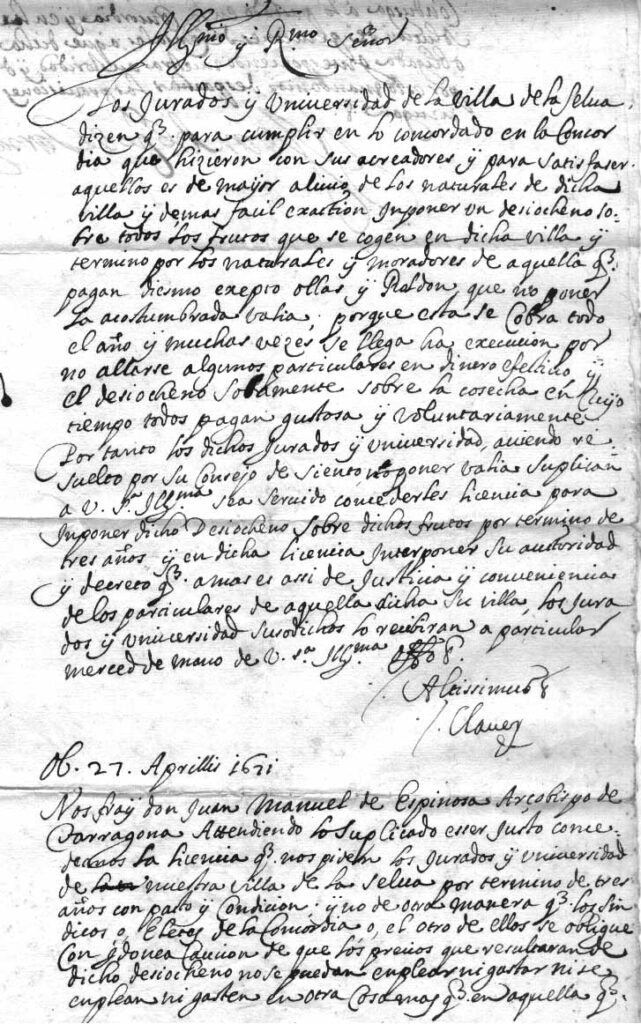 Illmo y Rmo Señor
Los Jurados y Vniuersidad de la villa de la Selua
dizen q̃. para cumplir en lo concordado en la Concor
dia que hizieron con sus acreadores y para satisfaser
aquellos es de mayor aliuio de los naturales de dicha
villa y de mas facil exaction Inponer vn desiocheno so-
bre todos los frutos que se cogen en dicha villa y
termino por los naturales y moradores de aquella q̃.
pagan diesmo exepto ollas y que no poner
la acostumbrada valia; porque esta se Cobra todo
el año y muchas vezes se llega ha execucion por
no allarse algunos particulares en dinero efectiuo y
el desiocheno solamente sobre la cosecha en cuyo
tiempo todos pagan gustosa y voluntariamente
Por tanto los dichos Jurados y vniuersidad, auiendo re
suelto por su Consejo de siento, no poner valia suplican
a V. Sa. Illma sea seruido concederles licencia para
Inponer dicho Desiocheno sobre dichos frutos por termino de
tres años y en dicha licencia Interponer su autoridad
y decreto q̃. a mas es assi de Justicia y conveniencia
de los particulares de aquella dicha su villa, los Jura
dos y vniuersidad susodichos lo recibiran a particular
merced de mano de V. Sa. Illma.
Altissimus &
Claver
Ob. 27. Aprillis 1671
Nos fray don Juan Manuel de Espinosa Arçobispo de
Tarragona Attendiendo lo suplicado esser justo conce
demos la licencia q̃. nos piden los Jurados y vniuersidad
de nuestra villa de la Selua por termino de tres
años con pacto y Condicion y no de otra manera q̃. los sin
dicos o, eletos de la Concordia o, el otro de ellos se oblique
con ydonea Caucion de que los precios que resultaran de
dicho desiocheno no se puedan enplear ni gastar ni se
enplean ni gasten en otra Cosa mas q̃. en aquella q̃.